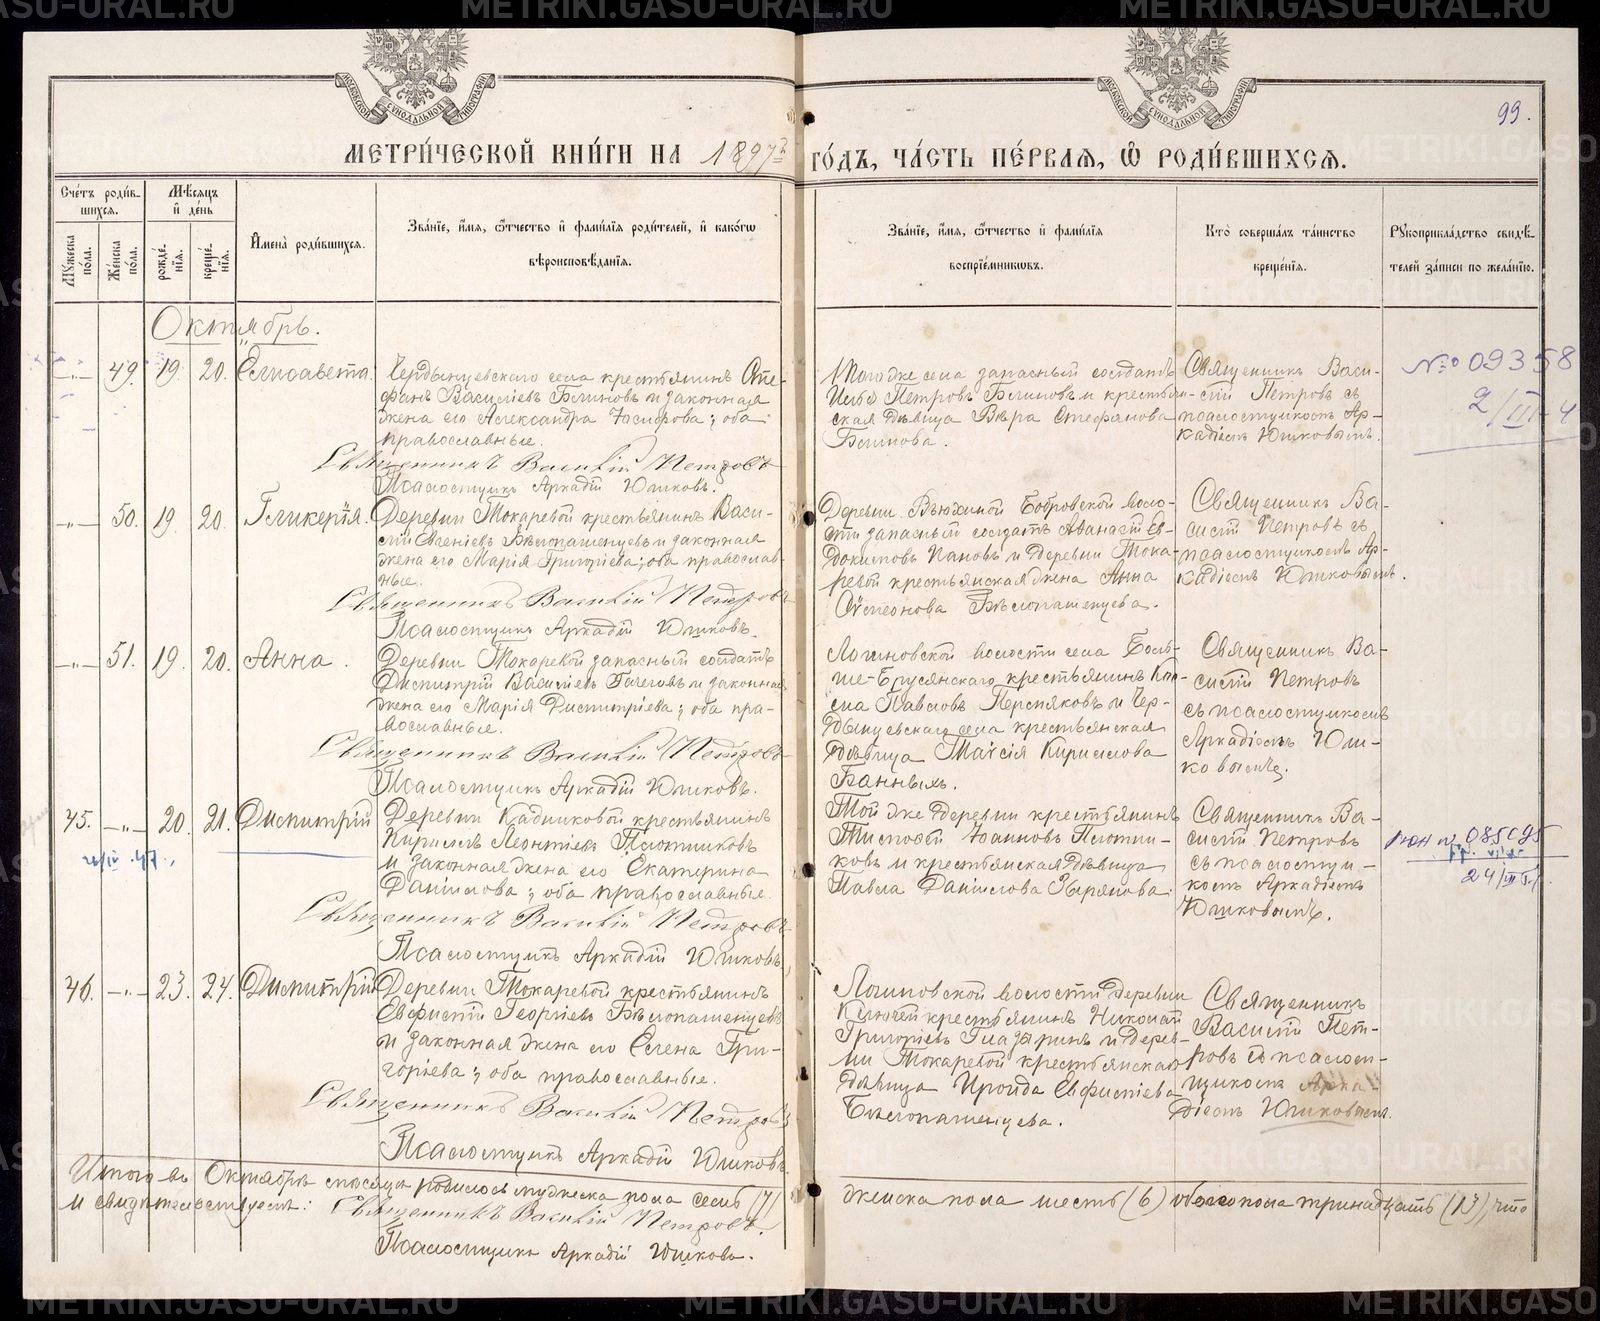 METRIKI.GASU-URAL.RU
МОСКОВСКОЙ СѴНОДАЛЬНОЙ ТИПОГРАФІИ
МОСКОВСКОЙ СѴНОДАЛЬНОЙ ТИПОГРАФІИ
99.
МЕТРИ́ЧЕСКОЙ КНИ́ГИ НА 1897й ГО́ДЪ, ЧА́СТЬ ПЕ́РВАЯ, Ѿ РОДИ́ВШИХСЯ.
Сче́тъ роди́вшихся.
Мꙋ́жеска по́ла.
Же́нска по́ла.
Мѣ́сяцъ и҆ де́нь
рожде́нія.
креще́нія.
И҆мена̀ роди́вшихся.
Зва́ніе, и҆́мя, ѻ҆́тчество и҆ фами́лія роди́телей, и҆ како́гѡ
вѣроисповѣ́данія.
Зва́ніе, и҆́мя, ѻ҆́тчество и҆ фами́лія
воспріе́мникѡвъ.
Кто̀ соверша́лъ та́инство
креще́нія.
Рꙋкоприкла́дство свидѣ́телей за́писи по жела́нію.
Октябрь.
-„- 49. 19. 20. Елисавета.
Чердынцевскаго села крестьянинъ Сте-
фанъ Васильевъ Блиновъ и законная
жена его Александра Іосифова; оба
православные.
Священникъ Василій Петровъ
Псаломщикъ Аркадій Юшковъ.
Тогоже села запасный солдатъ
Илья Петровъ Блиновъ и крестьян-
ская дѣвица Вѣра Стефанова
Блинова.
Священникъ Васи-
лій Петровъ съ
псаломщикомъ Ар-
кадіемъ Юшковымъ.
№ 09358
-„- 50. 19. 20. Гликерія.
Деревни Токаревой крестьянинъ Васи-
лій Евгеніевъ Бѣлопашенцевъ и законная
жена его Марія Григоріева; оба православ-
ные.
Священникъ Василій Петровъ
Псаломщикъ Аркадій Юшковъ.
Деревни Вьюхиной Бобровской воло-
сти запасный солдатъ Аѳанасій Ев-
докимовъ Пановъ и деревни Тока-
ревой крестьянская жена Анна
Сѵмеонова Бѣлопашенцева.
Священникъ Ва-
силій Петровъ съ
псаломщикомъ Ар-
кадіемъ Юшковымъ.
-„- 51. 19. 20. Анна.
Деревни Токаревой запасный солдатъ
Димитрій Васильевъ и законная
жена его Марія Димитріева; оба пра-
вославные.
Священникъ Василій Петровъ
Псаломщикъ Аркадій Юшковъ.
Логиновской волости села Боль-
ше-Брусянскаго крестьянинъ
Павловъ и Чер-
дынцевскаго села крестьянская
дѣвица Таисія Кириллова
Банныхъ.
Священникъ Ва-
силій Петровъ
съ псаломщикомъ
Аркадіемъ Юш-
ковымъ.
45. -„- 20. 21. Димитрій
Деревни Кадниковой крестьянинъ
Кириллъ Леонтіевъ Плотниковъ
и законная жена его Екатерина
Даніилова; оба православные.
Священникъ Василій Петровъ
Псаломщикъ Аркадій Юшковъ.
Той же деревни крестьянинъ
Тимоѳей Іоанновъ Плотни-
ковъ и крестьянская дѣвица
Павла Даніилова Зырянова.
Священникъ Ва-
силій Петровъ
съ псаломщи-
комъ Аркадіемъ
Юшковымъ.
46. -„- 23. 24. Димитрій
Деревни Токаревой крестьянинъ
Евфимій Георгіевъ Бѣлопашенцевъ
и законная жена его Елена Гри-
горіева; оба православные.
Священникъ Василій Петровъ
Псаломщикъ Аркадій Юшковъ.
Логиновской волости деревни
Ключей крестьянинъ Николай
Григоріевъ и дерев-
ни Токаревой крестьянская
дѣвица Ираида Евфиміева
Бѣлопашенцева.
Священникъ
Василій Пет-
ровъ съ псалом-
щикомъ Арка-
діемъ Юшковымъ.
Итого въ Октябрѣ мѣсяцѣ родилось мужеска пола семь (7) женска пола шесть (6) обоего пола тринадцать (13), что
и свидѣтельствуемъ: Священникъ Василій Петровъ.
Псаломщикъ Аркадій Юшковъ.